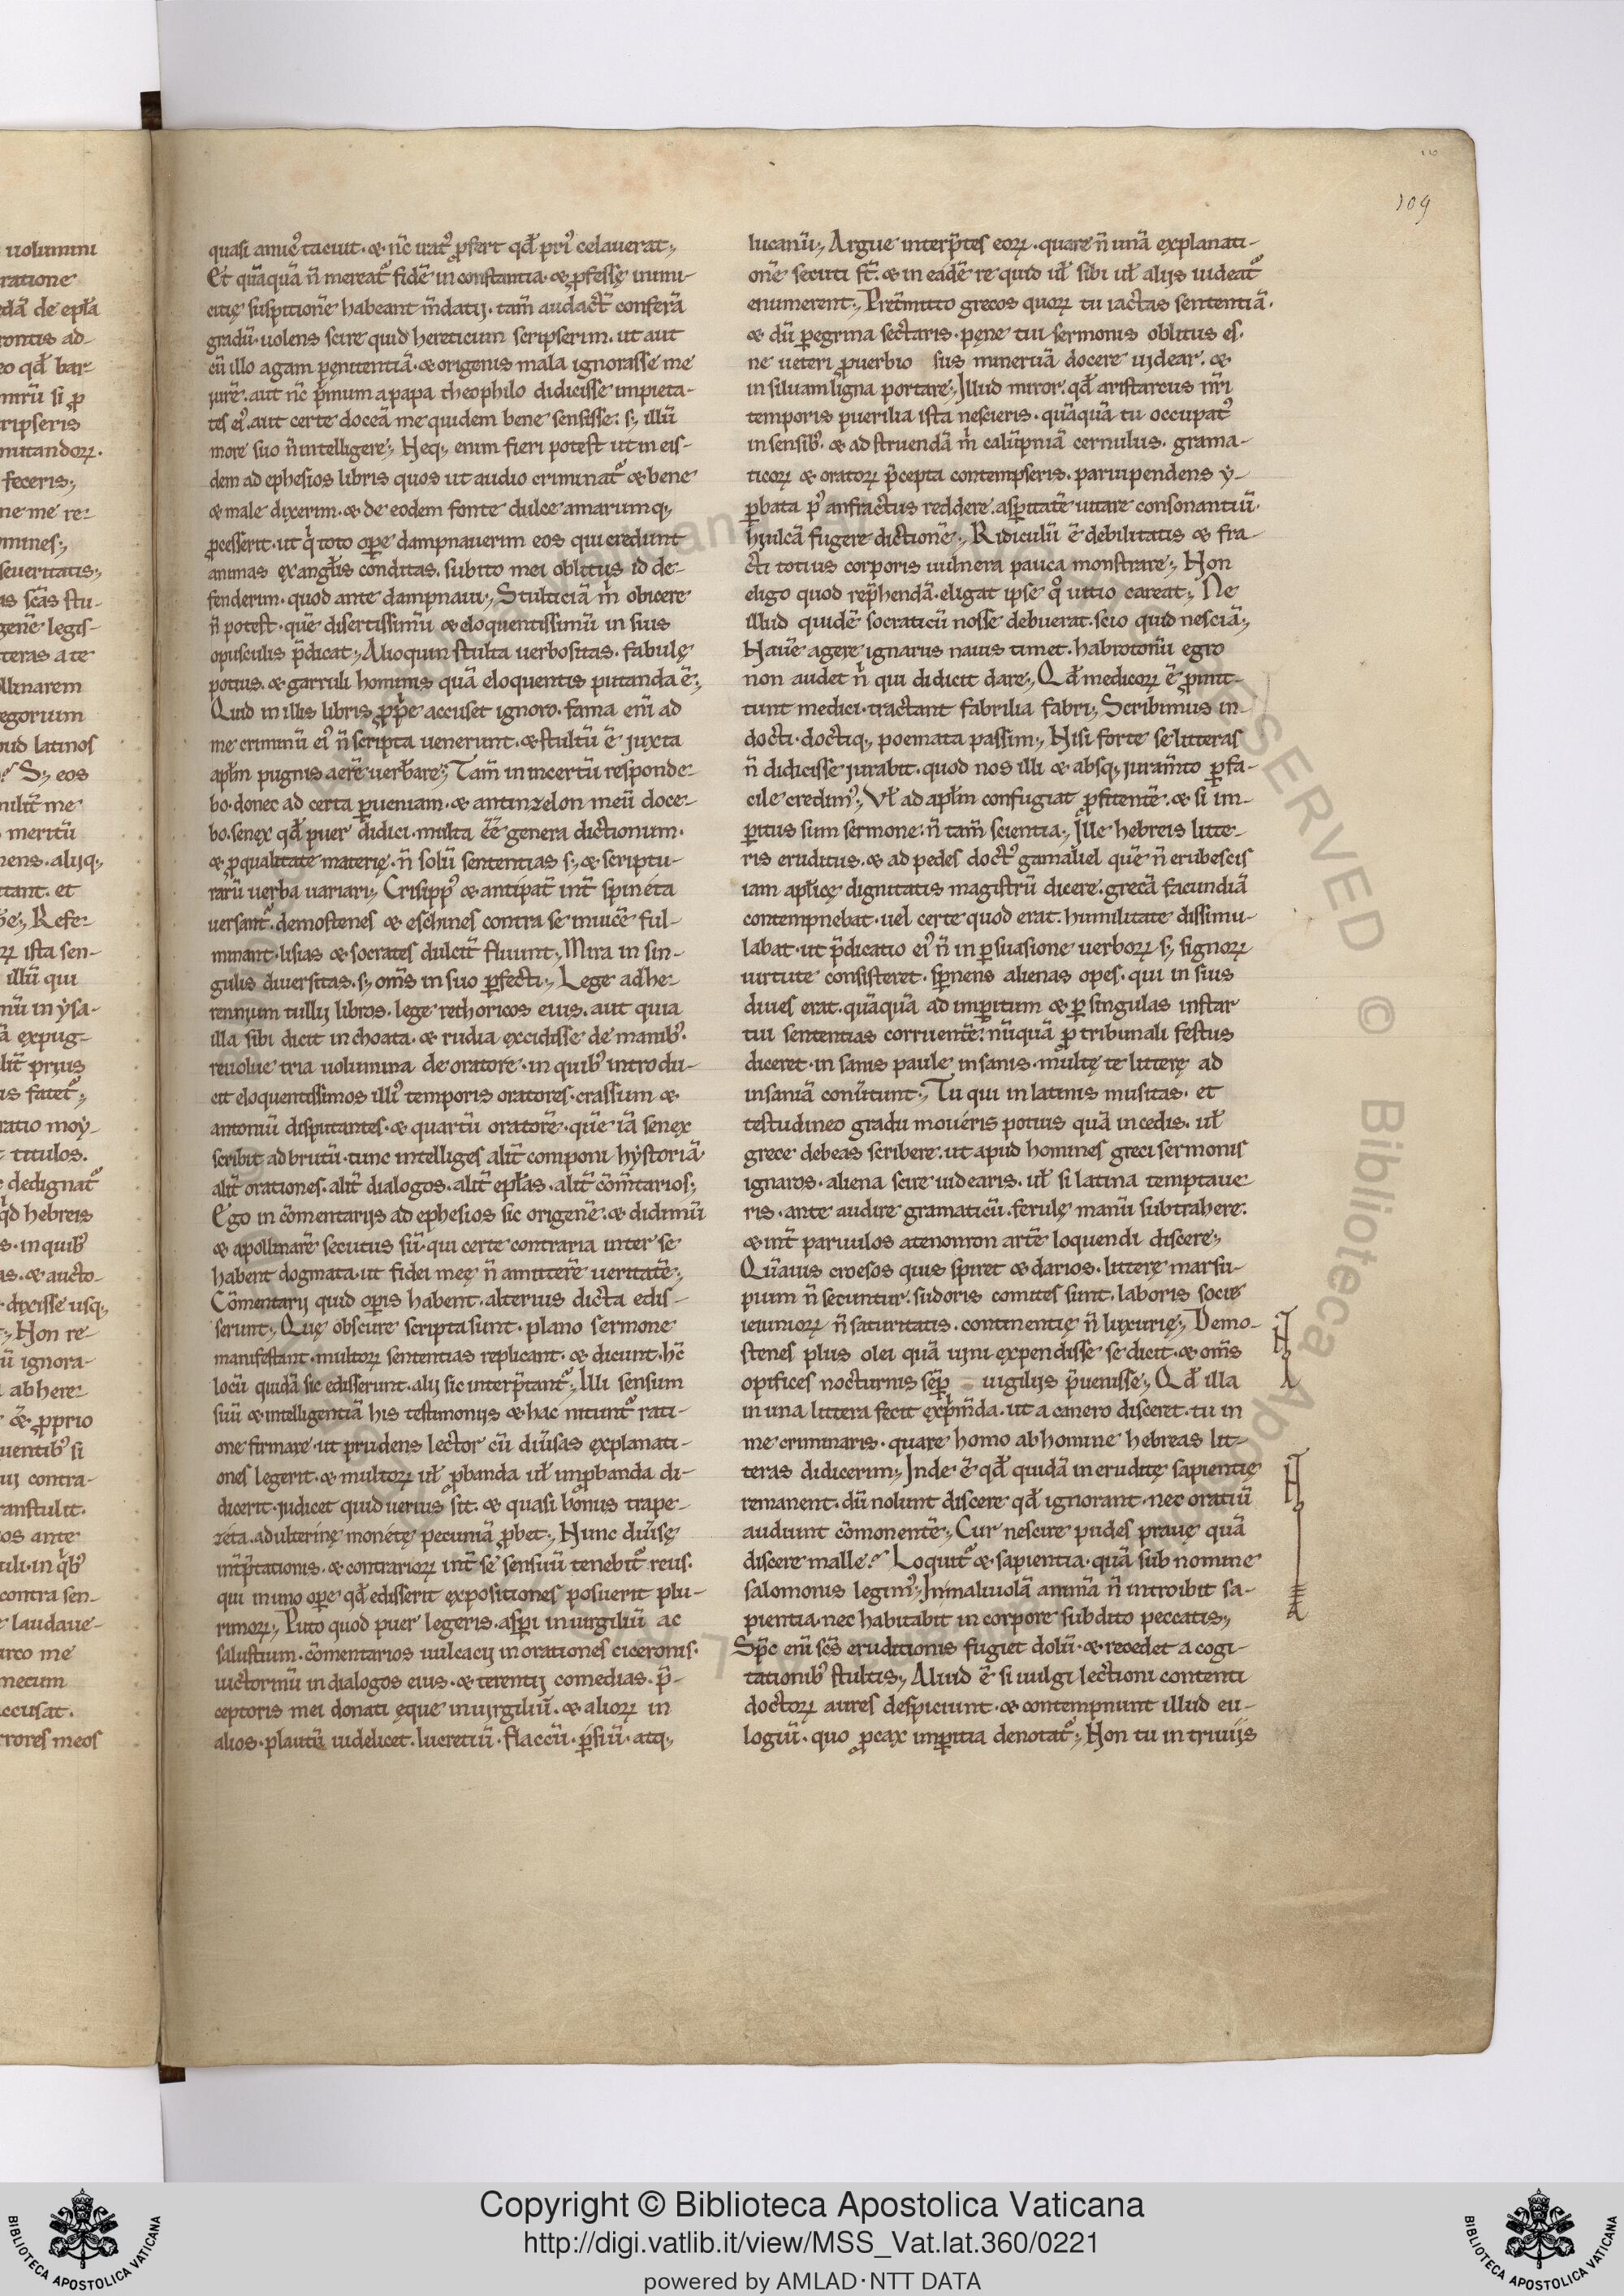 109
quasi amic᷒ tacuit. & nc̄ iratꝰ ꝓfert qđ priꝰ celauerat;
Et quāquā n̄ mereat᷑ fidē in constantia. & ꝓfessę inimi-
citię suspitionē habeant m̄datij. tam̄ audact̄ conferā
gradū. uolens scire quid hereticum scripserim. ut aut
cū illo agam pęnitentiā. & origenis mala ignorasse me
iurē. aut nc̄ p̄mum a papa theophilo didicisse impieta-
tes eiꝰ. aut certe doceā me quidem bene sensisse. s; illū
more suo n̄ intelligere; Neq; enim fieri potest ut in eis-
dem ad ephesios libris quos ut audio criminat᷑ & bene
& male dixerim. & de eodem fonte dulce amarumq;
ꝓcesserit. ut q̇ toto ope dampnauerim eos qui credunt
animas ex angłis conditas. subito mei oblitus id de-
fenderim. quod ante dampnaui; Stulticiā m̄ obicere
n̄ potest. quē disertissimū & eloquentissimū in suis
opusculis p̄dicat; Alioquin stulta uerbositas. fabulę
potius. & garruli hominis quā eloquentis putanda ē;
Quid in illis libris ꝓp̄e accuset ignoro. fama eni᷑ ad
me criminū eiꝰ n̄ scripta uenerunt. & stultū ē juxta
apłm pugnis aerē uerƀare; Tam̄ in incertū responde-
bo. donec ad certa ꝑueniam. & antinzelon meū doce-
bo. senex qđ puer didici. multa eē genera dictionum.
& ꝓ qualitate materię. n̄ solū sententias s; & scriptu-
rarū uerba uariari; Crisippꝰ & antipat̄ int̄ spinéta
uersant᷑. demostenes & eschines contra se inuicē ful-
minant. lisias & socrates dulcit̄ fluunt; Mira in sin-
gulis diuersitas. s; om̄s in suo ꝑfecti; Lege ad he-
rennium tullij libros. lege rethoricos eius. aut quia
illa sibi dicit inchoata. & rudia excidisse de manibꝰ.
reuolue tria uolumina de oratore. in quibꝰ introdu-
cit eloquentissimos illiꝰ temporis oratores. crassum &
antoniū disputantes. & quartū oratorē. quē iā senex
scribit ad brutū. tunc intelliges alit̄ componi hẏstoriā.
alit̄ orationes. alit̄ dialogos. alit̄ epłas. alit̄ cōm̄tarios;
Ego in cōmentarijs ad ephesios sic origenē. & didimū
& apollinarē secutus sū. qui certe contraria inter se
habent dogmata. ut fidei meę n̄ amitterē ueritatē;
Cōmentarij quid opis habent. alterius dicta edis-
serunt; Quę obscure scripta sunt. plano sermone
manifestant. multoꝝ sententias replicant. & dicunt. hc̄
locū quidā sic edisserunt. alij sic interp̄tant᷑; Illi sensum
suū & intelligentiā his testimonijs & hac nitunt᷑ rati-
one firmare. ut prudens lector cū diūsas explanati-
ones legerit. & multoꝝ uł ꝓbanda uł inꝓbanda di-
dicerit. judicet quid uerius sit. & quasi bonus trape-
zéta. adulterinę monetę pecuniā ꝓbet; Nunc diūsę
int̄p̄tationis. & contrarioꝝ int̄ se sensuū tenebit᷑ reus.
qui in uno ope qđ edisserit expositiones posuerit plu-
rimoꝝ; Puto quod puer legeris. aspi in uirgiliū ac
salustium. cōmentarios uulcacij in orationes ciceronis.
uictorinū in dialogos eius. & terentij comedias. p̄-
ceptoris mei donati eque in uirgiliū. & alioꝝ in
alios. plautū uidelicet. lucretiū. flaccū. ꝑsiū. atq;
lucanū; Argue interp̄tes eoꝝ. quare n̄ unā explanati-
onē secuti st̄. & in eadē re quid uł sibi uł alijs uideat᷑
enumerent; Pret̄mitto grecos quoꝝ tu iactas sententiā.
& dū ꝑegrina sectaris. pęne tui sermonis oblitus es.
ne ueteri ꝓuerbio sus mineruā docere uidear. &
in siluam ligna portare; Illud miror. qđ aristarcus nr̄i
temporis puerilia ista nescieris. quāquā tu occupatꝰ
in sensibꝰ. & ad struendā m̄ calūpniā cernulus. grama-
ticoꝝ & oratoꝝ p̄cepta contempseris. paruipendens ẏ-
ꝑbata pꝰ anfractus reddere. aspitatē uitare consonantiū.
hiulcā fugere dictionē; Ridiculū ē debilitatis & fra-
cti totius corporis uulnera pauca monstrare; Non
eligo quod rep̄hendā. eligat ipse qͦ uitio careat; Ne
illud quidē socraticū nosse debuerat. scio quid nesciā;
Nauē agere ignarus nauis timet. habrotonū egro
non audet n̄ qui didicit dare; Qđ medicoꝝ ē ꝓmit-
tunt medici. tractant fabrilia fabri; Scribimus in-
docti. doctiq; poemata passim; Nisi forte se litteras
n̄ didicisse jurabit. quod nos illi & absq; juram̄to ꝑ fa-
cile credimꝰ; Vł ad apłm confugiat ꝓfitentē. & si im-
ꝑitus sum sermone. n̄ tam̄ scientia; Ille hebreis litte-
ris eruditus. & ad pedes doctꝰ gamaliel quē n̄ erubescis
iam apłicę dignitatis magistrū dicere. grecā facundiā
contempnebat. uel certe quod erat. humilitate dissimu-
labat. ut p̄dicatio eiꝰ n̄ in ꝑsuasione uerboꝝ s; signoꝝ
uirtute consisteret. spnens alienas opes. qui in suis
diues erat. quāquā ad impitum & ꝑ singulas instar
tui sententias corruentē. nūquā ꝓ tribunali festus
diceret. insanis paule insanis. multę te litterę ad
insaniā conūtunt; Tu qui in latinis musitas. et
testudineo gradu mouéris potius quā incedis. uł
grece debeas scribere. ut apud homines greci sermonis
ignaros. aliena scire uidearis. uł si latina temptaue
ris. ante audire gramaticū. ferulę manū subtrahere.
& int̄ paruulos atenonron artē loquendi discere;
Qūauis croesos quis spiret & darios. litterę marsu-
pium n̄ secuntur. sudoris comites sunt. laboris socię
ieiunioꝝ n̄ saturitatis. continentię n̄ luxurię; Demo-
stenes plus olei quā uini expendisse se dicit. & om̄s
opifices nocturnis sep̄ uigilijs p̄uenisse; Qđ illa
in una littera fecit exp̄m̄da. ut a canero disceret. tu in
me criminaris. quare homo ab homine hebreas lit-
teras didicerim; Inde ē qđ quidā in eruditę sapientię
remanent. dū nolunt discere qđ ignorant. nec oratiū
audiunt cōmonentē; Cur nescire pudes prauę quā
discere malle? Loquit᷑ & sapientia. quā sub nomine
salomonis legimꝰ; In maliuolā animā n̄ introibit sa-
pientia. nec habitabit in corpore subdito peccatis;
Spc̄ eni᷑ scs̄ eruditionis fugiet dolū. & recedet a cogi-
tationibꝰ stultis; Aliud ē si uulgi lectioni contenti
doctoꝝ aures despiciunt. & contempnunt illud eu-
logiū. quo ꝓcax impitia denotat᷑; Non tu in triuijs
Copyright © Biblioteca Apostolica Vaticana
http://digi.vatlib.it/view/MSS_Vat.lat.360/0221
powered by AMLAD·NTT DATA